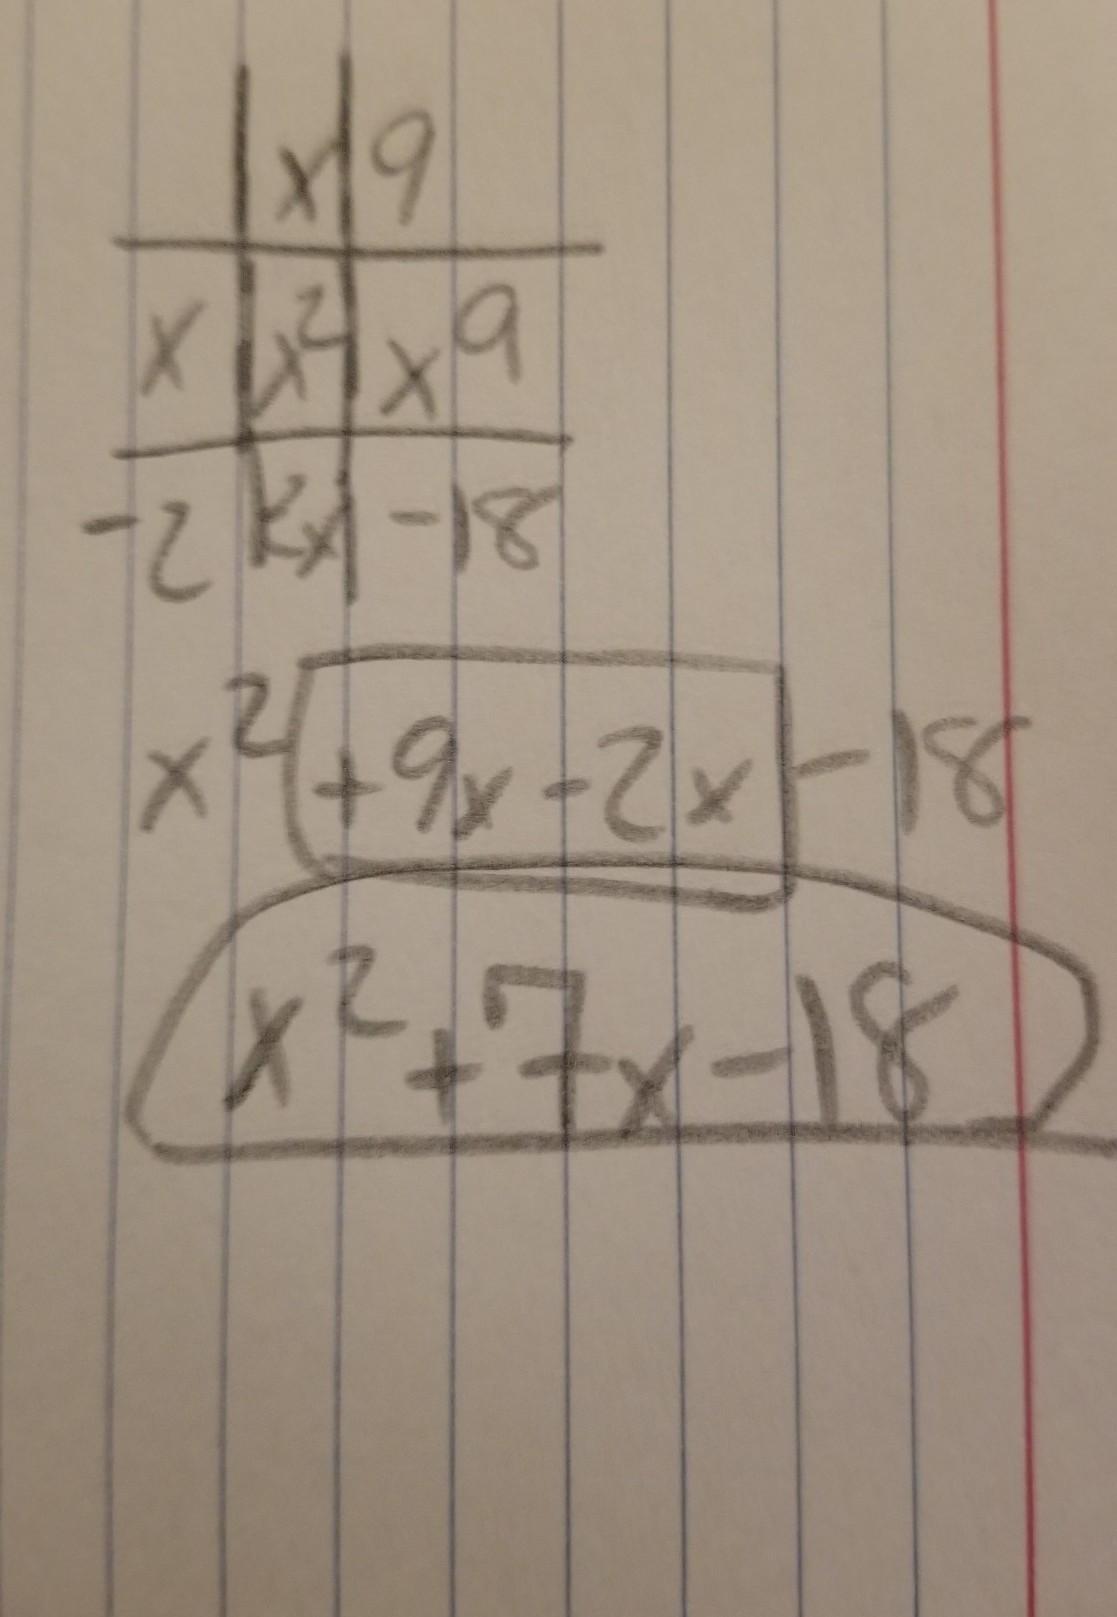 x 9
x x² x9
-2 -2x -18
x² +9x -2x -18
x² + 7x - 18